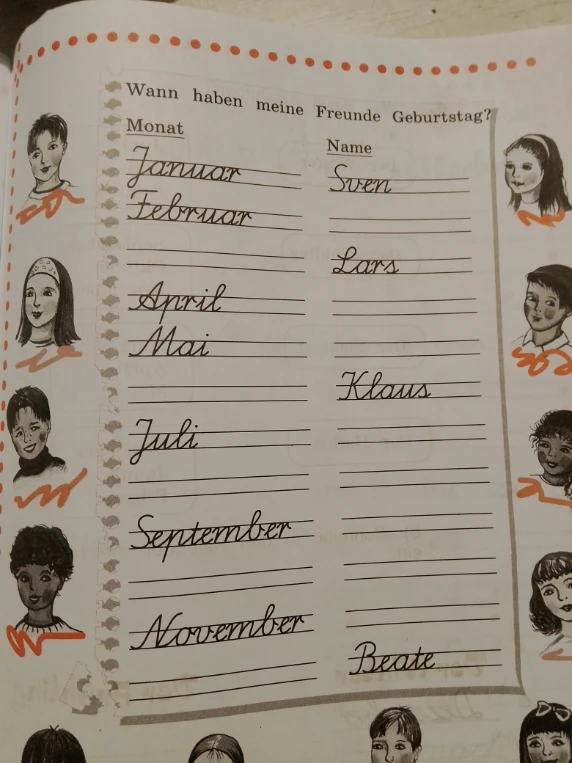 Wann haben meine Freunde Geburtstag?
Monat Name
Januar Sven
Februar
Lars
April
Mai
Klaus
Juli
September
November
Beate